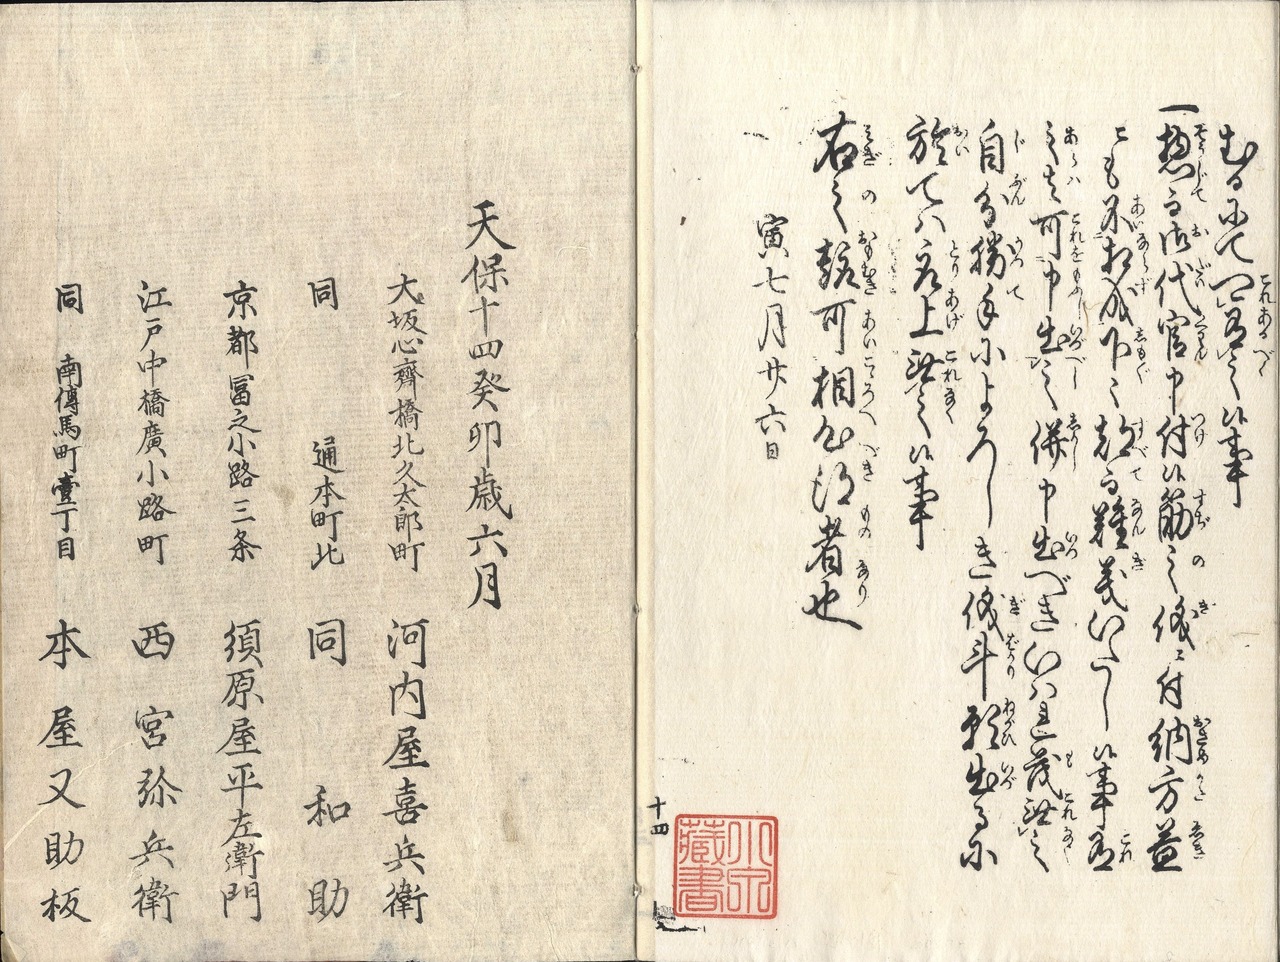 むるにて可有之候事
一惣而御代官申付候筋之儀ニ付納方益
ニも不相成下々都而難義いたし候事有
之共可申出之併申出べきいはれ茂無之
自分勝手によろしき儀斗願出るに
於ては取上無之候事
右之趣可相心得者也
寅七月廿六日
十四
天保十四癸卯歳六月
大坂心齋橋北久太郎町 河内屋喜兵衛
同 通本町北 同 和助
京都冨之小路三条 須原屋平左衛門
江戸中橋廣小路町 西宮弥兵衛
同 南傳馬町壹丁目 本屋又助板